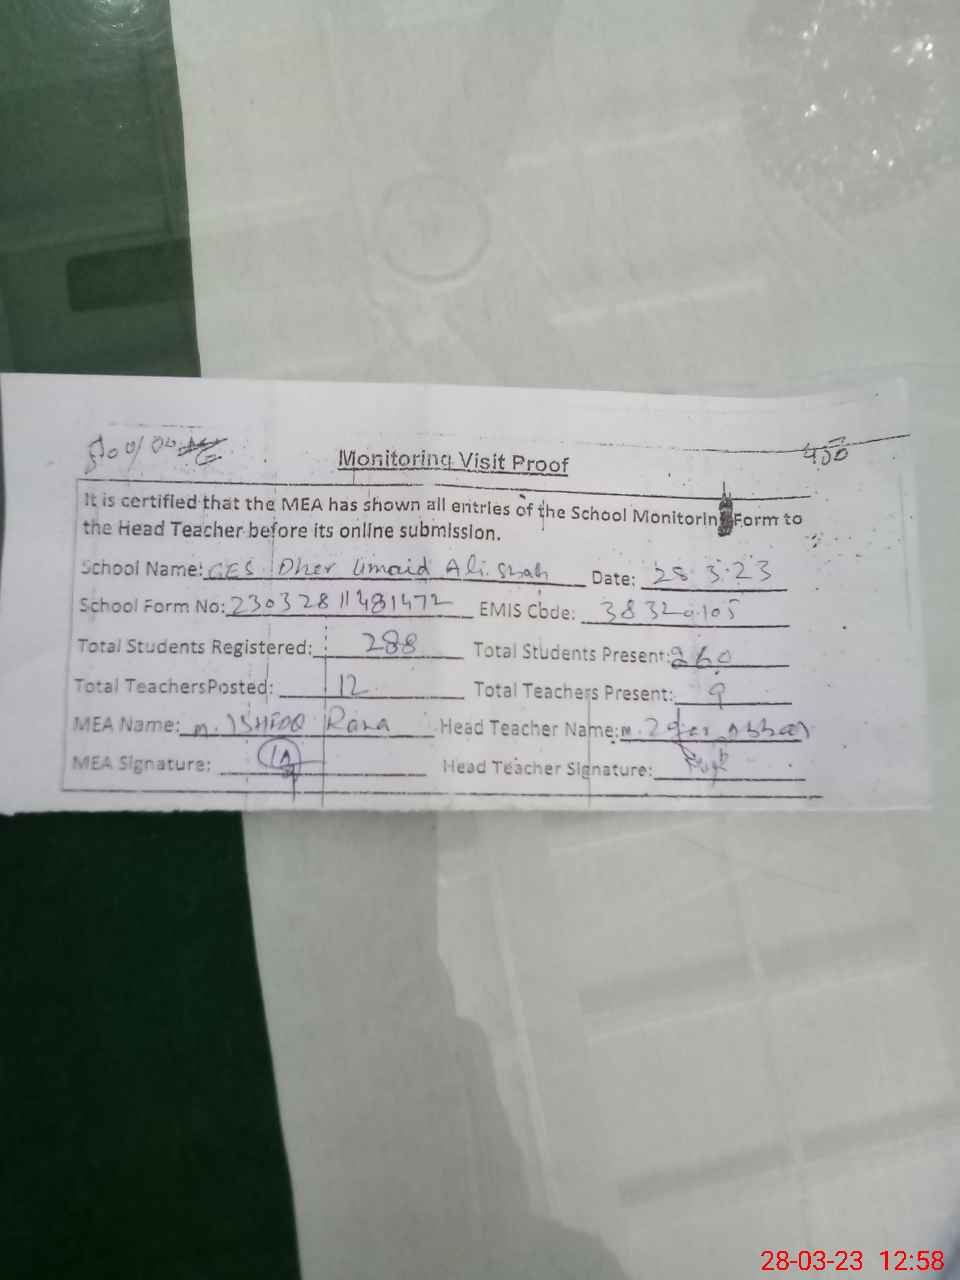 Monitoring Visit Proof
450
It is certified that the MEA has shown all entries of the School Monitorin Form to
the Head Teacher before its online submission.
School Name: GES Dher Umaid Ali Shah Date: 28.3.23
School Form No: 23032811481472 EMIS Code: 38320105
Total Students Registered: 288 Total Students Present: 260
Total TeachersPosted: 12 Total Teachers Present: 9
MEA Name: M. ISHFAQ Rana Head Teacher Name: M. Zafar Abbas
MEA Signature: Head Teacher Signature:
28-03-23 12:58